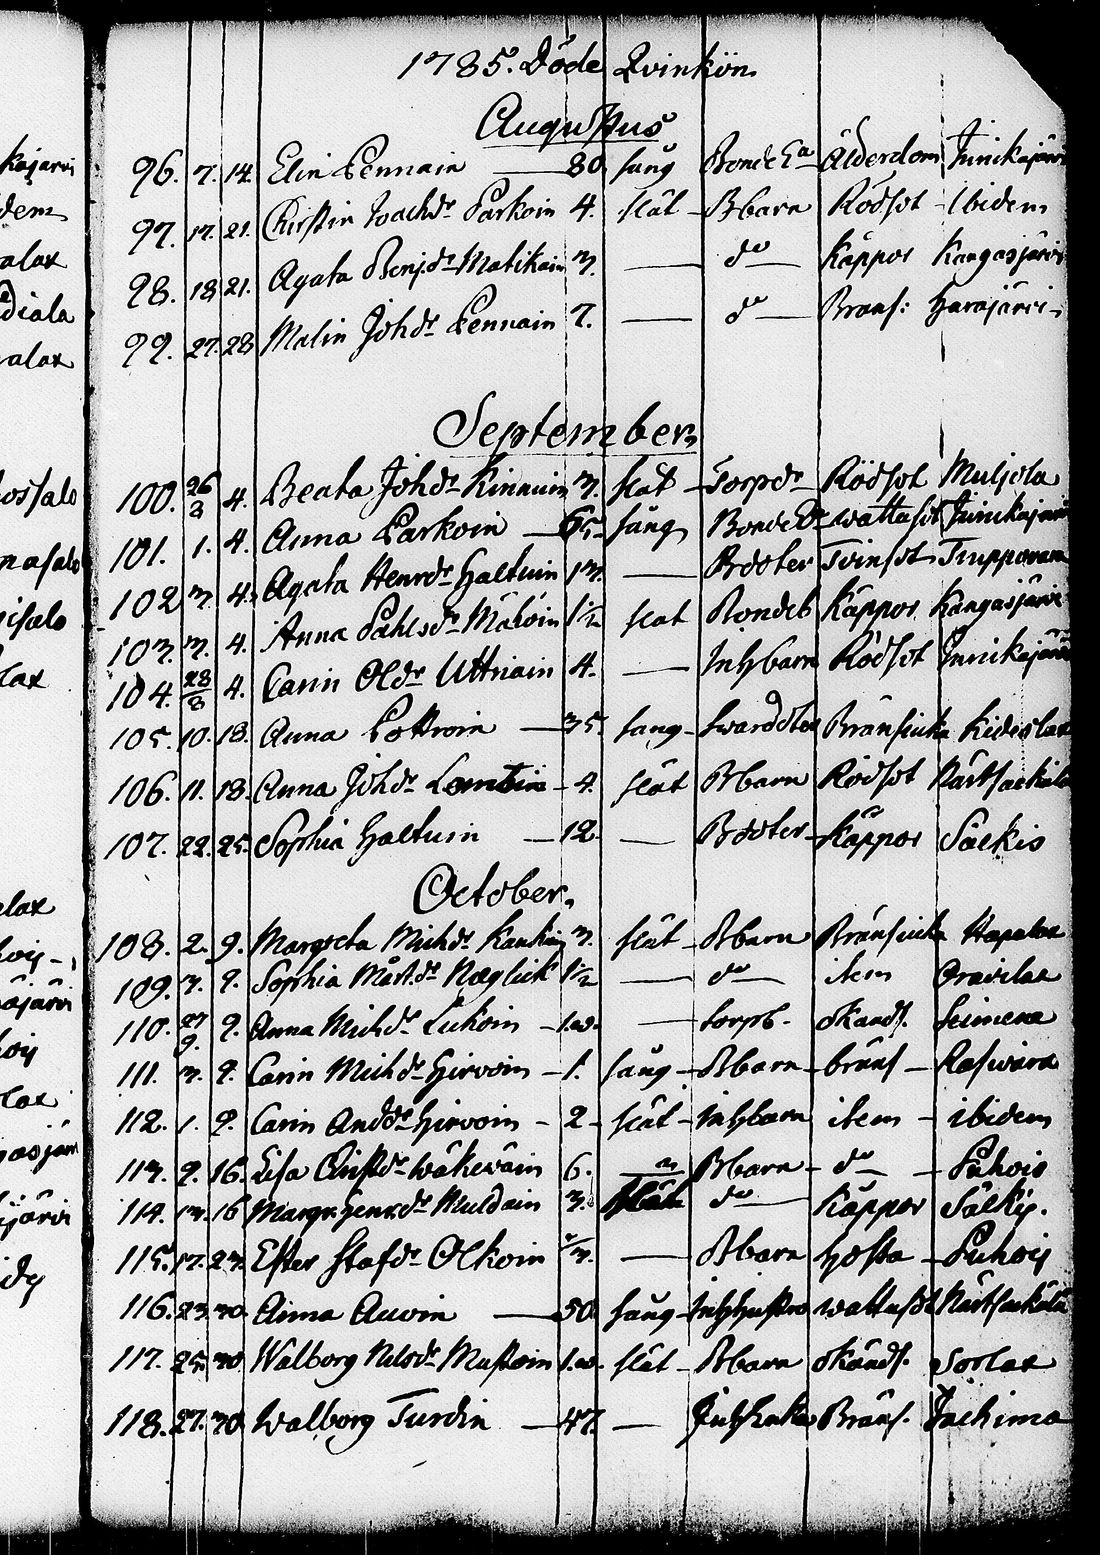 kajarvi
dem
alax
diala
alax
salo
lax
lax
järvi
lax
järvi
1785. Döde Qvinkön
Augustus
96. 7. 14. Elin Pennain — 80. sång Bonde E:a Ålderdom Juinikajärvi
97. 17. 21. Chirstin Joachdr Parkoin 4. slät - Bbarn Rödsot - Ibidem
98. 18. 21. Agata Benjdr Matikain 3. — do — Kåppor Kangasjärvi
99. 27. 28 Malin Johdr Pennain 7. — do — Bräns: Harajärvi -
September
100. 26/8 4. Beata Johdr Kinnuin 3. slät - Torpdr Rödsot Muljola
101. 1. 4. Anna Parkoin — 65. sång Bonde wattusot Juinikajärvi
102 3. 4. Agata Henrdr Haltuin 13. — Bdoter Tvinsot Truppovara
103. 3. 4. Anna Påhlsdr Mähöin 1½ slät Bondeb Kåppor Kangasjärvi
104. 28/8 4. Carin Oldr Uttriain 4. — Inhbarn Rödsot Juinikajärvi
105. 10. 18. Anna Pottroin — 35. sång - Swarddoter Bränsiuka Kideslax
106. 11. 18. Anna Johdr - 4. slät Bbarn Rödsot Närtsaekülä
107. 22. 25. Sophia Haltuin — 12 — Bdoter - Kåppor Sälkis
October.
108. 2. 9. Margreta Michdr 3. slät - Bbarn Bränsiuka Hapalax
109. 3. 9. Sophia Mårtdr Naglick 1½ — do — item Oravilax
110. 27/9. 9. Anna Michdr Lukoin - 1.w. — torpb. okänds. Seimena
111. 3. 9. Carin Michdr Hirvoin - 1. sång - Bbarn - bräns - Raswara
112. 1. 9. Carin Anddr Hirvoin - 2 - slät - Inhbarn item - ibidem
113. 9. 16. Lisa Christdr Wäkewäin 6. — Bbarn - do — - Puhois
114. 13. 16 Margr. Henrdr Muldain 3. slät do — Kåppor Sälkis.
115. 17. 23. Ester Stafdr Olkoin — Bbarn Hosta - Puhois
116. 23. 30. Anna Auvin — 50 sång - Inhhustro wattusot Närtsaekülä
117. 25. 30 Walborg Nilsdr Mustoin 1.w. slät - Bbarn okänds. Sorlax
118. 27. 30 Walborg Turdin — 47. — Inhenka Bräns. Jachima